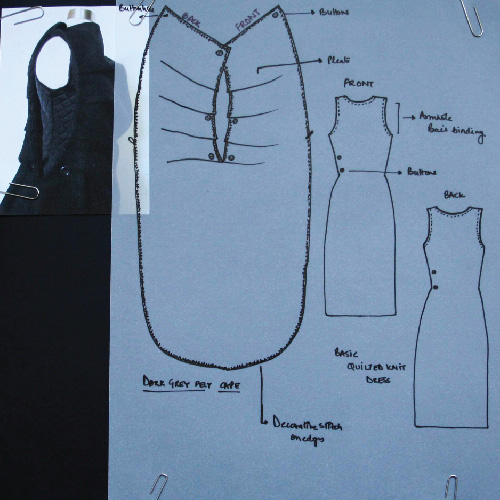 Buttonhole
BACK
FRONT
Buttons
Pleats
FRONT
Armhole
Bais binding
Buttons
BACK
BASIC
QUILTED KNIT
DRESS
DARK GREY FELT CAPE
Decorative stitch
on edges